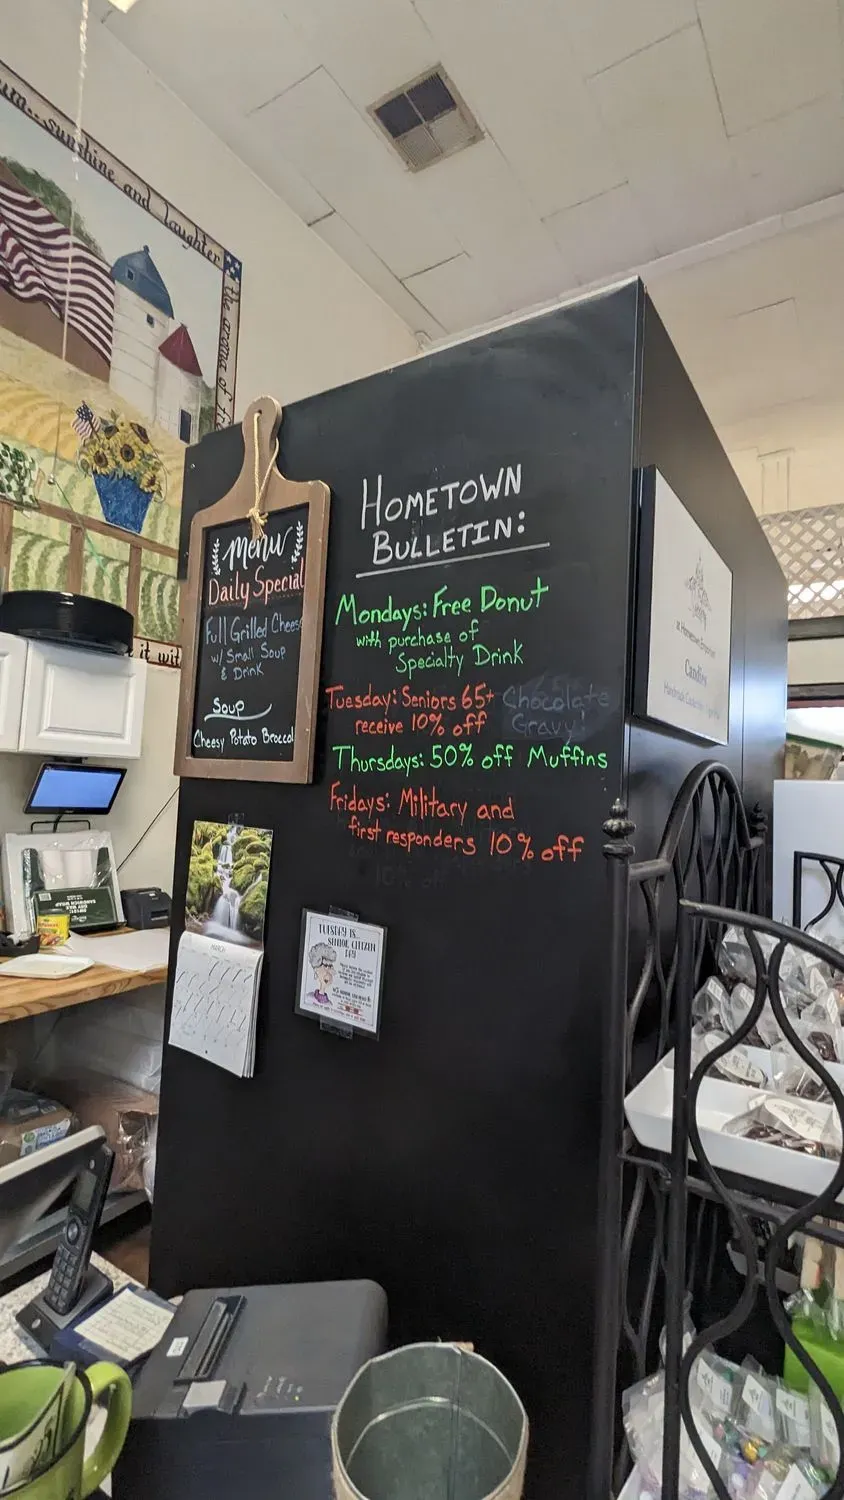 sunshine and laughter
the aroma of
it wit
Menu
Daily Special
Full Grilled Cheese
w/ Small Soup
& Drink
Soup
Cheesy Potato Broccol
HOMETOWN
BULLETIN:
Mondays: Free Donut
with purchase of
Specialty Drink
Tuesday: Seniors 65+
receive 10% off
Chocolate
Gravy!
Thursdays: 50% off Muffins
Fridays: Military and
first responders 10% off
10% off
MARCH
TUESDAY IS...
SENIOR CITIZEN
DAY
Hometown Emporium
Candies
SANDWICH WRAP